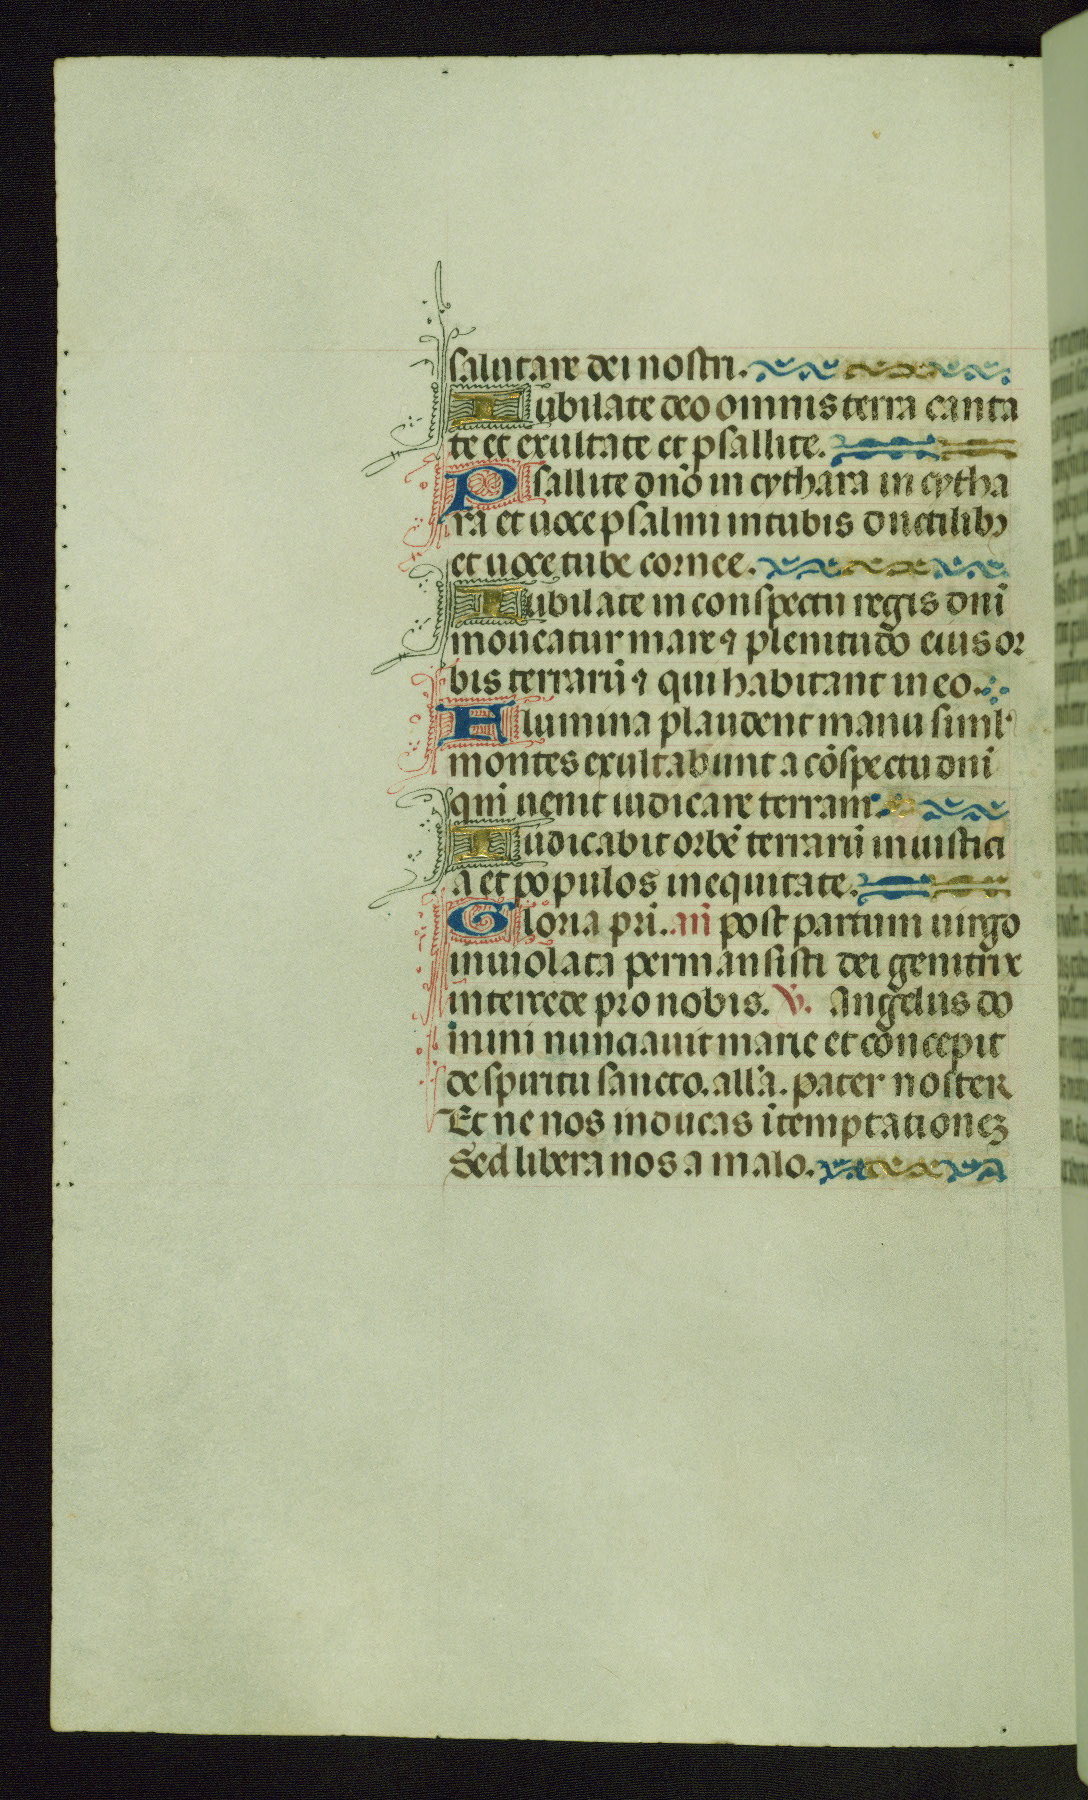 salutare dei nostri.
Iubilate deo omnis terra canta
te et exultate et psallite.
Psallite dño in cythara in cytha
ra et uoce psalmi in tubis ductilibꝫ
et uoce tube cornee.
Iubilate in conspectu regis dnĩ
moueatur mare ⁊ plenitudo eius or
bis terrarũ ⁊ qui habitant in eo.
Flumina plaudent manu simĺ
montes exultabunt a cõspectu dnĩ
qm̃ uenit iudicare terram
Iudicabit orbẽ terrarũ in iustici
a et populos in equitate.
Gloria pr̃i. añ post partum uirgo
inuiolata permansisti dei genitrix
intercede pro nobis. ℣. Angelus do
mini nunciauit marie et concepit
de spiritu sancto. all'a. pater noster
Et ne nos inducas ĩ temptationeꝫ
Sed libera nos a malo.